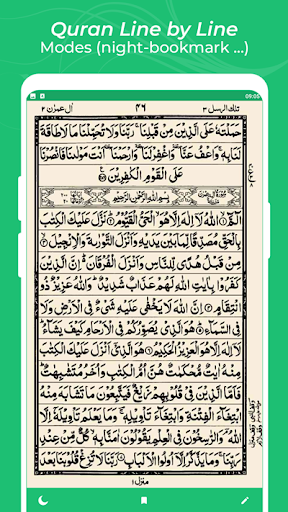 Quran Line by Line
Modes (night-bookmark ...)
09:05
تلك الرسل ٣
٤٦
اٰل عمرٰن ٢
حَمَلْتَهٗ عَلَى الَّذِيْنَ مِنْ قَبْلِنَا ۚ رَبَّنَا وَلَا تُحَمِّلْنَا مَا لَا طَاقَةَ
لَنَا بِهٖ ۚ وَاعْفُ عَنَّا ۥ وَاغْفِرْ لَنَا ۥ وَارْحَمْنَا ۥ اَنْتَ مَوْلٰىنَا فَانْصُرْنَا
عَلَى الْقَوْمِ الْكٰفِرِيْنَ
بِسْمِ اللّٰهِ الرَّحْمٰنِ الرَّحِيْمِ
الٓمّٓ ۙ اللّٰهُ لَاۤ اِلٰهَ اِلَّا هُوَ الْحَيُّ الْقَيُّوْمُ ؕ نَزَّلَ عَلَيْكَ الْكِتٰبَ
بِالْحَقِّ مُصَدِّقًا لِّمَا بَيْنَ يَدَيْهِ وَاَنْزَلَ التَّوْرٰىةَ وَالْاِنْجِيْلَ ۙ
مِنْ قَبْلُ هُدًى لِّلنَّاسِ وَاَنْزَلَ الْفُرْقَانَ ؕ اِنَّ الَّذِيْنَ
كَفَرُوْا بِاٰيٰتِ اللّٰهِ لَهُمْ عَذَابٌ شَدِيْدٌ ؕ وَاللّٰهُ عَزِيْزٌ ذُو
انْتِقَامٍ ؕ اِنَّ اللّٰهَ لَا يَخْفٰى عَلَيْهِ شَيْءٌ فِى الْاَرْضِ وَلَا
فِى السَّمَآءِ ؕ هُوَ الَّذِيْ يُصَوِّرُكُمْ فِى الْاَرْحَامِ كَيْفَ يَشَآءُ ؕ
لَاۤ اِلٰهَ اِلَّا هُوَ الْعَزِيْزُ الْحَكِيْمُ هُوَ الَّذِيْۤ اَنْزَلَ عَلَيْكَ الْكِتٰبَ
مِنْهُ اٰيٰتٌ مُّحْكَمٰتٌ هُنَّ اُمُّ الْكِتٰبِ وَاُخَرُ مُتَشٰبِهٰتٌ ؕ
فَاَمَّا الَّذِيْنَ فِيْ قُلُوْبِهِمْ زَيْغٌ فَيَتَّبِعُوْنَ مَا تَشَابَهَ مِنْهُ
ابْتِغَآءَ الْفِتْنَةِ وَابْتِغَآءَ تَاْوِيْلِهٖ ۚ وَمَا يَعْلَمُ تَاْوِيْلَهٗۤ اِلَّا
اللّٰهُ ۘ وَالرّٰسِخُوْنَ فِى الْعِلْمِ يَقُوْلُوْنَ اٰمَنَّا بِهٖ ۙ كُلٌّ مِّنْ عِنْدِ
رَبِّنَا ۚ وَمَا يَذَّكَّرُ اِلَّاۤ اُولُوا الْاَلْبَابِ رَبَّنَا لَا تُزِغْ قُلُوْبَنَا بَعْدَ
منزل ١